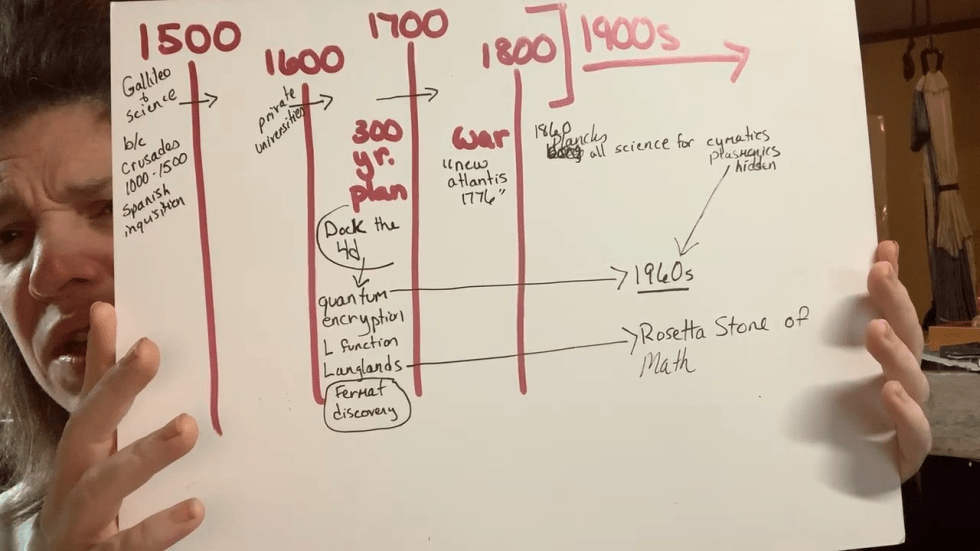 1500
1600
1700
1800
1900s
Gallileo
+
science
b/c
Crusades
1000-1500
Spanish
inquisition
private
universities
300
yr.
plan
Dock the
4d
quantum
encryption
L function
Langlands
Fermat
discovery
War
"new
atlantis
1776"
1860
Plancks
all science for cymatics
plasmonics
hidden
1960s
Rosetta Stone of
Math